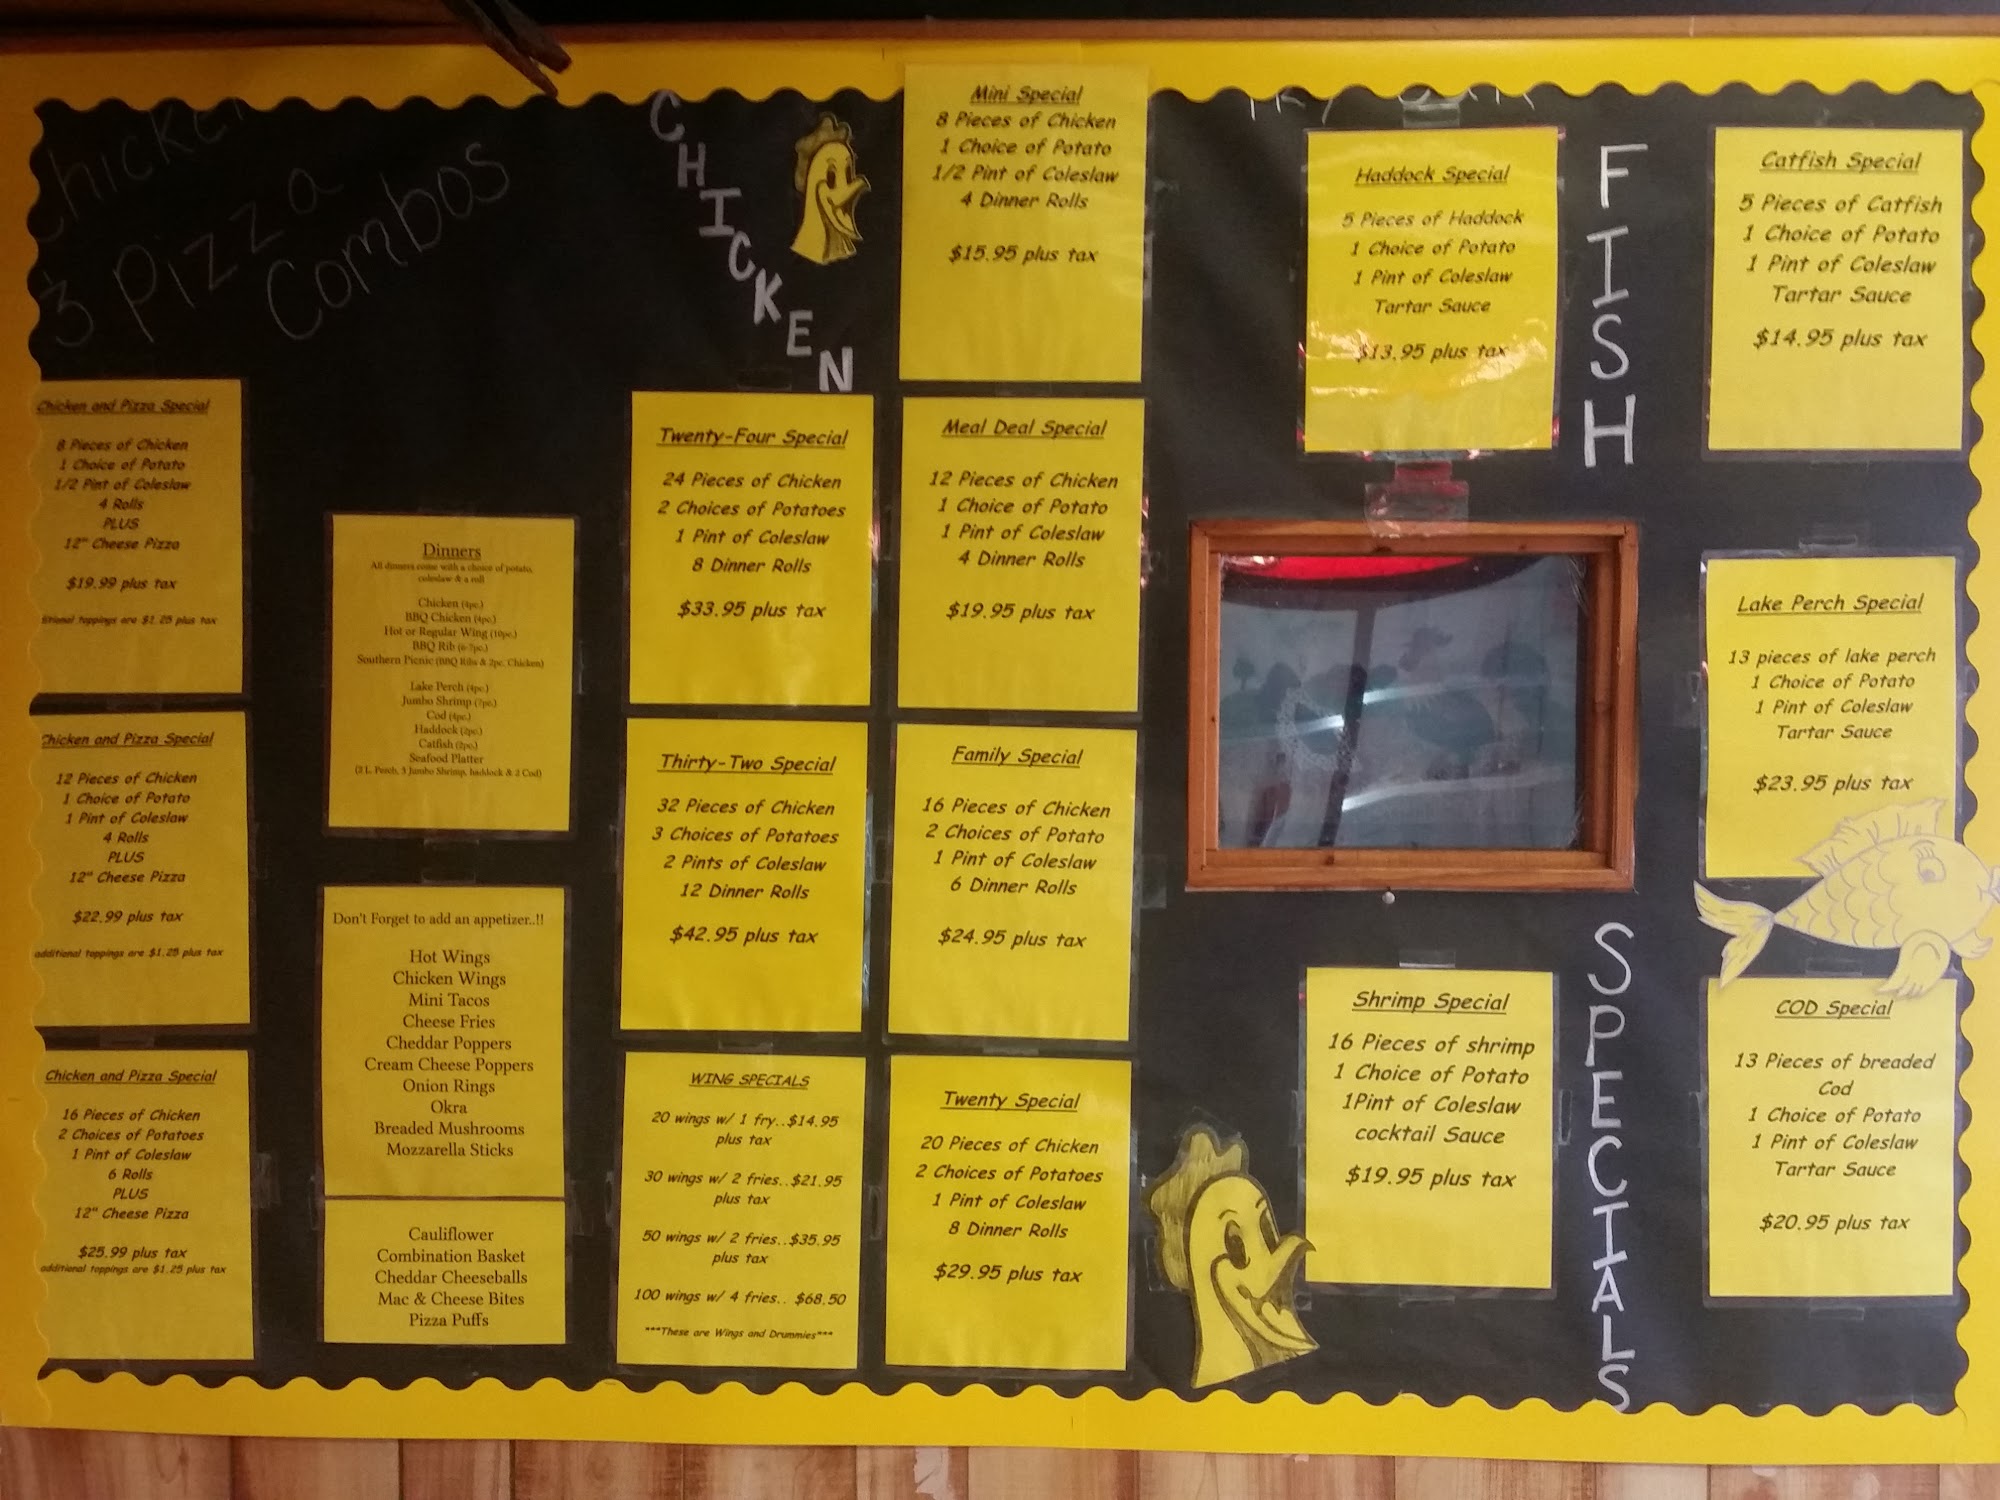 Chicken
& Pizza
Combos
Chicken and Pizza Special
8 Pieces of Chicken
1 Choice of Potato
1/2 Pint of Coleslaw
4 Rolls
PLUS
12" Cheese Pizza
$19.99 plus tax
toppings are $1.25 plus tax
Chicken and Pizza Special
12 Pieces of Chicken
1 Choice of Potato
1 Pint of Coleslaw
4 Rolls
PLUS
12" Cheese Pizza
$22.99 plus tax
additional toppings are $1.25 plus tax
Chicken and Pizza Special
16 Pieces of Chicken
2 Choices of Potatoes
1 Pint of Coleslaw
6 Rolls
PLUS
12" Cheese Pizza
$25.99 plus tax
additional toppings are $1.25 plus tax
Dinners
All dinners come with a choice of potato,
coleslaw & a roll
Chicken (4pc.)
BBQ Chicken (4pc.)
Hot or Regular Wing (10pc.)
BBQ Rib (6-7pc.)
Southern Picnic (BBQ Ribs & 2pc. Chicken)
Lake Perch (4pc.)
Jumbo Shrimp (7pc.)
Cod (4pc.)
Haddock (2pc.)
Catfish (2pc.)
Seafood Platter
(2 L. Perch, 3 Jumbo Shrimp, haddock & 2 Cod)
Don't Forget to add an appetizer..!!
Hot Wings
Chicken Wings
Mini Tacos
Cheese Fries
Cheddar Poppers
Cream Cheese Poppers
Onion Rings
Okra
Breaded Mushrooms
Mozzarella Sticks
Cauliflower
Combination Basket
Cheddar Cheeseballs
Mac & Cheese Bites
Pizza Puffs
CHICKEN
Twenty-Four Special
24 Pieces of Chicken
2 Choices of Potatoes
1 Pint of Coleslaw
8 Dinner Rolls
$33.95 plus tax
Thirty-Two Special
32 Pieces of Chicken
3 Choices of Potatoes
2 Pints of Coleslaw
12 Dinner Rolls
$42.95 plus tax
WING SPECIALS
20 wings w/ 1 fry..$14.95
plus tax
30 wings w/ 2 fries..$21.95
plus tax
50 wings w/ 2 fries..$35.95
plus tax
100 wings w/ 4 fries.. $68.50
***These are Wings and Drummies***
Mini Special
8 Pieces of Chicken
1 Choice of Potato
1/2 Pint of Coleslaw
4 Dinner Rolls
$15.95 plus tax
Meal Deal Special
12 Pieces of Chicken
1 Choice of Potato
1 Pint of Coleslaw
4 Dinner Rolls
$19.95 plus tax
Family Special
16 Pieces of Chicken
2 Choices of Potato
1 Pint of Coleslaw
6 Dinner Rolls
$24.95 plus tax
Twenty Special
20 Pieces of Chicken
2 Choices of Potatoes
1 Pint of Coleslaw
8 Dinner Rolls
$29.95 plus tax
TRY OUR
Haddock Special
5 Pieces of Haddock
1 Choice of Potato
1 Pint of Coleslaw
Tartar Sauce
$13.95 plus tax
FISH
SPECIALS
Shrimp Special
16 Pieces of shrimp
1 Choice of Potato
1Pint of Coleslaw
cocktail Sauce
$19.95 plus tax
Catfish Special
5 Pieces of Catfish
1 Choice of Potato
1 Pint of Coleslaw
Tartar Sauce
$14.95 plus tax
Lake Perch Special
13 pieces of lake perch
1 Choice of Potato
1 Pint of Coleslaw
Tartar Sauce
$23.95 plus tax
COD Special
13 Pieces of breaded
Cod
1 Choice of Potato
1 Pint of Coleslaw
Tartar Sauce
$20.95 plus tax